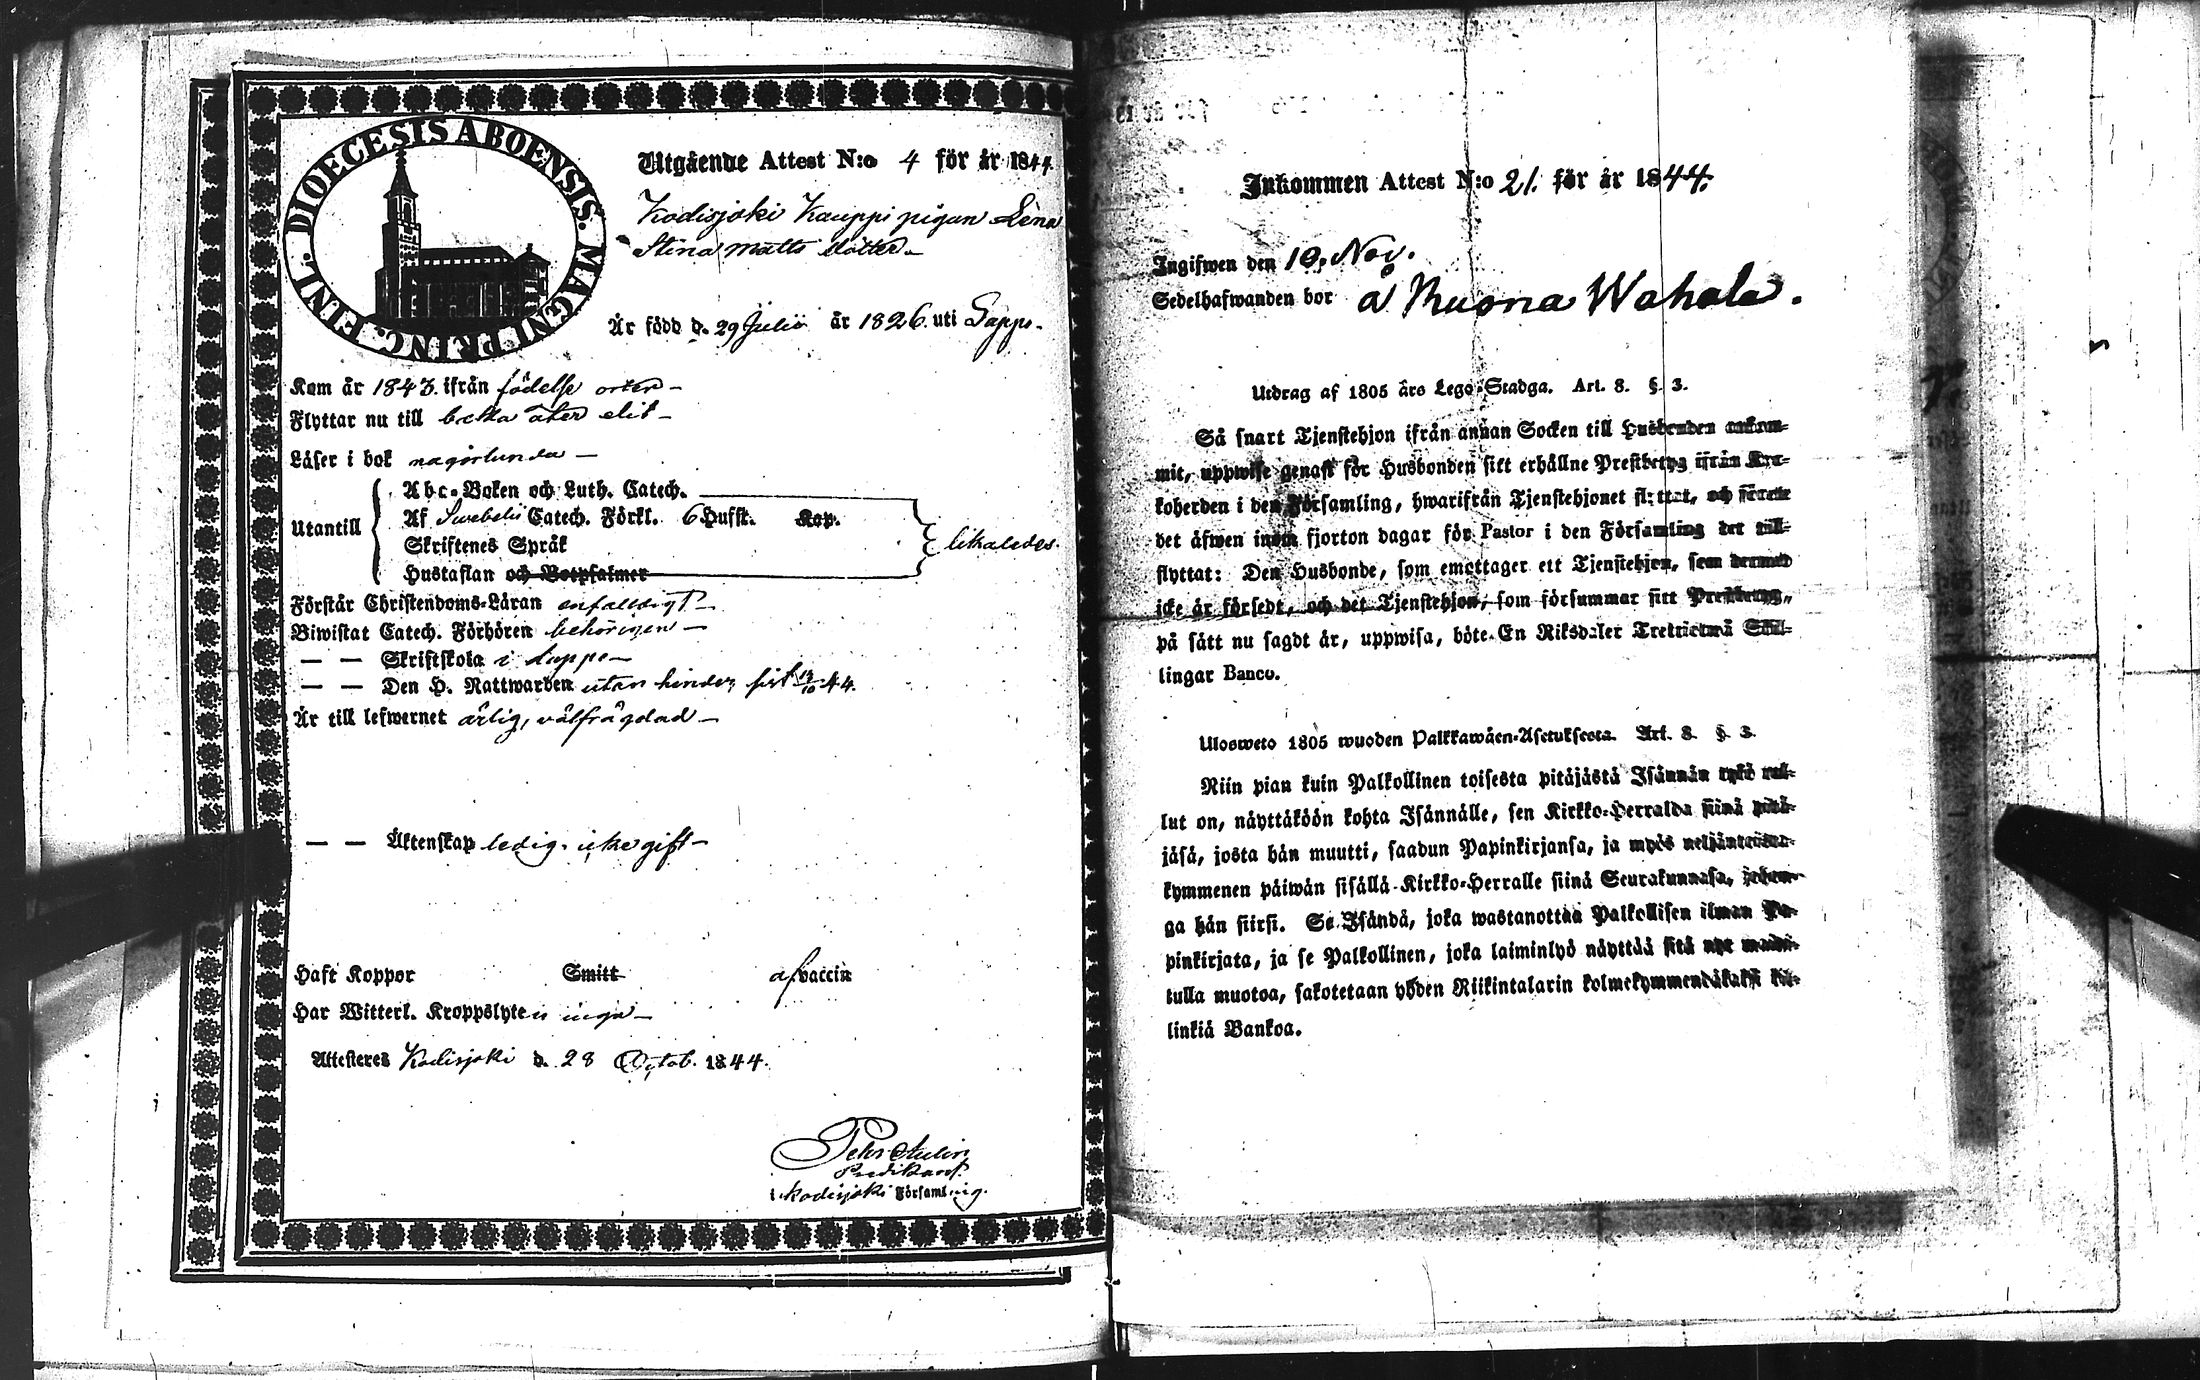 DIOECESIS ABOENSIS. MAGNI PRINC. FINL.
Utgående Attest N:o 4 för år 1844
Kodisjoki Kauppi pigan Lena
Stina Matts dotter
Är född d. 29 Julii år 1826 uti Lappi
Kom år 1843 ifrån födelse orten
Flyttar nu till åter dit
Läser i bok någorlunda
Utantill
Abc-Boken och Luth. Catech.
Af Swebelii Catech. Förkl. 6 Hufst. Kap.
Skriftenes Språk
Hustaflan och Botpsalmer
likaledes.
Förstår Christendoms-Läran enfaldigt
Biwistat Catech. Förhören behörigen
— — Skriftskola i Lappi
— — Den H. Nattwarden utan hinder, sist 13/10 44.
Är till lefwernet ärlig, välfrägdad
— — Äktenskap ledig. icke gift
Haft Koppor Smitt af vaccin
Har Witterl. Kroppslyten inga
Attesteres Kodisjoki d. 28 Octob. 1844.
Predikant
i Kodisjoki Församling.
Inkommen Attest N:o 21. för år 1844.
Ingifwen den 10. Nov.
Sedelhafwanden bor å Ruona Wahala.
Utdrag af 1805 års Lego-Stadga. Art. 8. §. 3.
Så snart Tjenstehjon ifrån annan Socken till Husbonden ankom-
mit, uppwise genast för Husbonden sitt erhållne Prestbetyg ifrån Kyr-
koherden i den Församling, hwarifrån Tjenstehjonet flyttat, och förete
det äfwen inom fjorton dagar för Pastor i den Församling det till-
flyttat: Den Husbonde, som emottager ett Tjenstehjon, som dermed
icke är försedt, och det Tjenstehjon, som försummar sitt Prestbetyg,
på sätt nu sagdt är, uppwisa, böte En Riksdaler Trettiotwå Skil-
lingar Banco.
Ulosweto 1805 wuoden Palkkawäen-Asetuksesta. Art. 8. §. 3.
Niin pian kuin Palkollinen toisesta pitäjästä Isännän työ tul-
lut on, näyttäköön kohta Isännälle, sen Kirkko-Herralda siinä pitä-
jäsä, josta hän muutti, saadun Papinkirjansa, ja myös neljäntoista-
kymmenen päiwän sisällä Kirkko-Herralle siinä Seurakunnasa, johon-
ga hän siirsi. Se Isändä, joka wastanottaa Palkollisen ilman Pa-
pinkirjata, ja se Palkollinen, joka laiminlyö näyttää sitä nyt maini-
tulla muotoa, sakotetaan yhden Riikintalarin kolmekymmendäkaksi kil-
linkiä Bankoa.